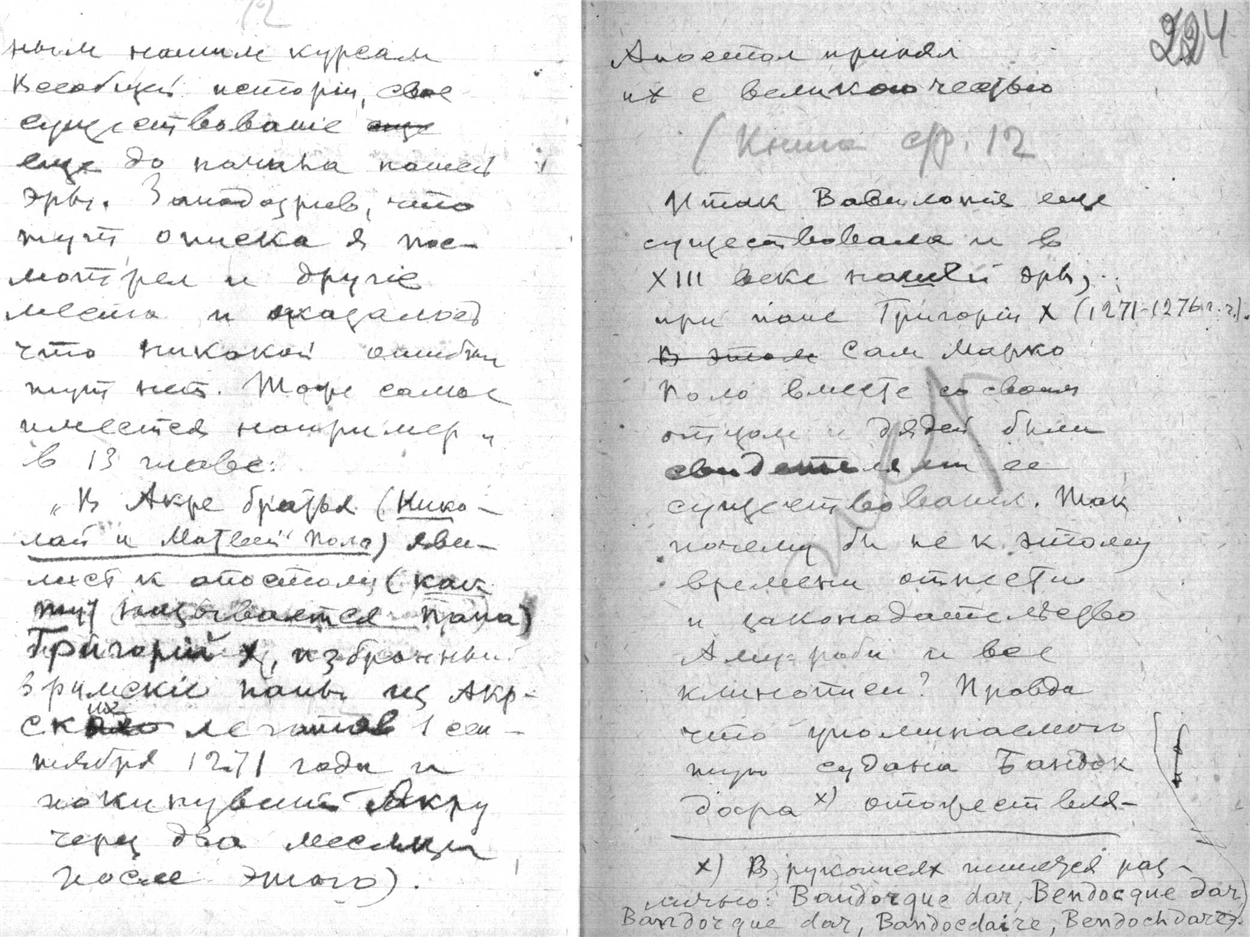 12
ным нашим курсам
Всеобщей истории, свое
существование
еще до начала нашей
эры. Заподозрив, что
тут описка я пос-
мотрел и другие
места и оказалось
что никакой ошибки
тут нет. Тоже самое
имеется например и
в 13 главе:
„В Акре братья (Нико-
лай и Матвей Поло) яви-
лись к апостолу (как
тут называется папа)
Григорий X, избранный
в римские папы из Акр-
ских легатов 1 сен-
тября 1271 года и
покинувший Акру
через два месяца
после этого).
224
Апостол принял
их с великою честью
(Книга стр. 12
Итак Вавилония еще
существовала и в
XIII веке нашей эры,
при папе Григории X (1271-1276 г.г.).
В этом Сам Марко
Поло вместе со своим
отцом и дядей были
свидетелями ее
существования. Так
почему бы не к этому
времени отнести
и законодательство
Амураби и все
клинописи? Правда
что упоминаемого
тут судана Бандок
дара х) отожествля-
х) В рукописях пишется раз-
лично: Bandorque dar, Bendocque dar,
Bandorque dar, Bandocdaire, Bendochdarez.